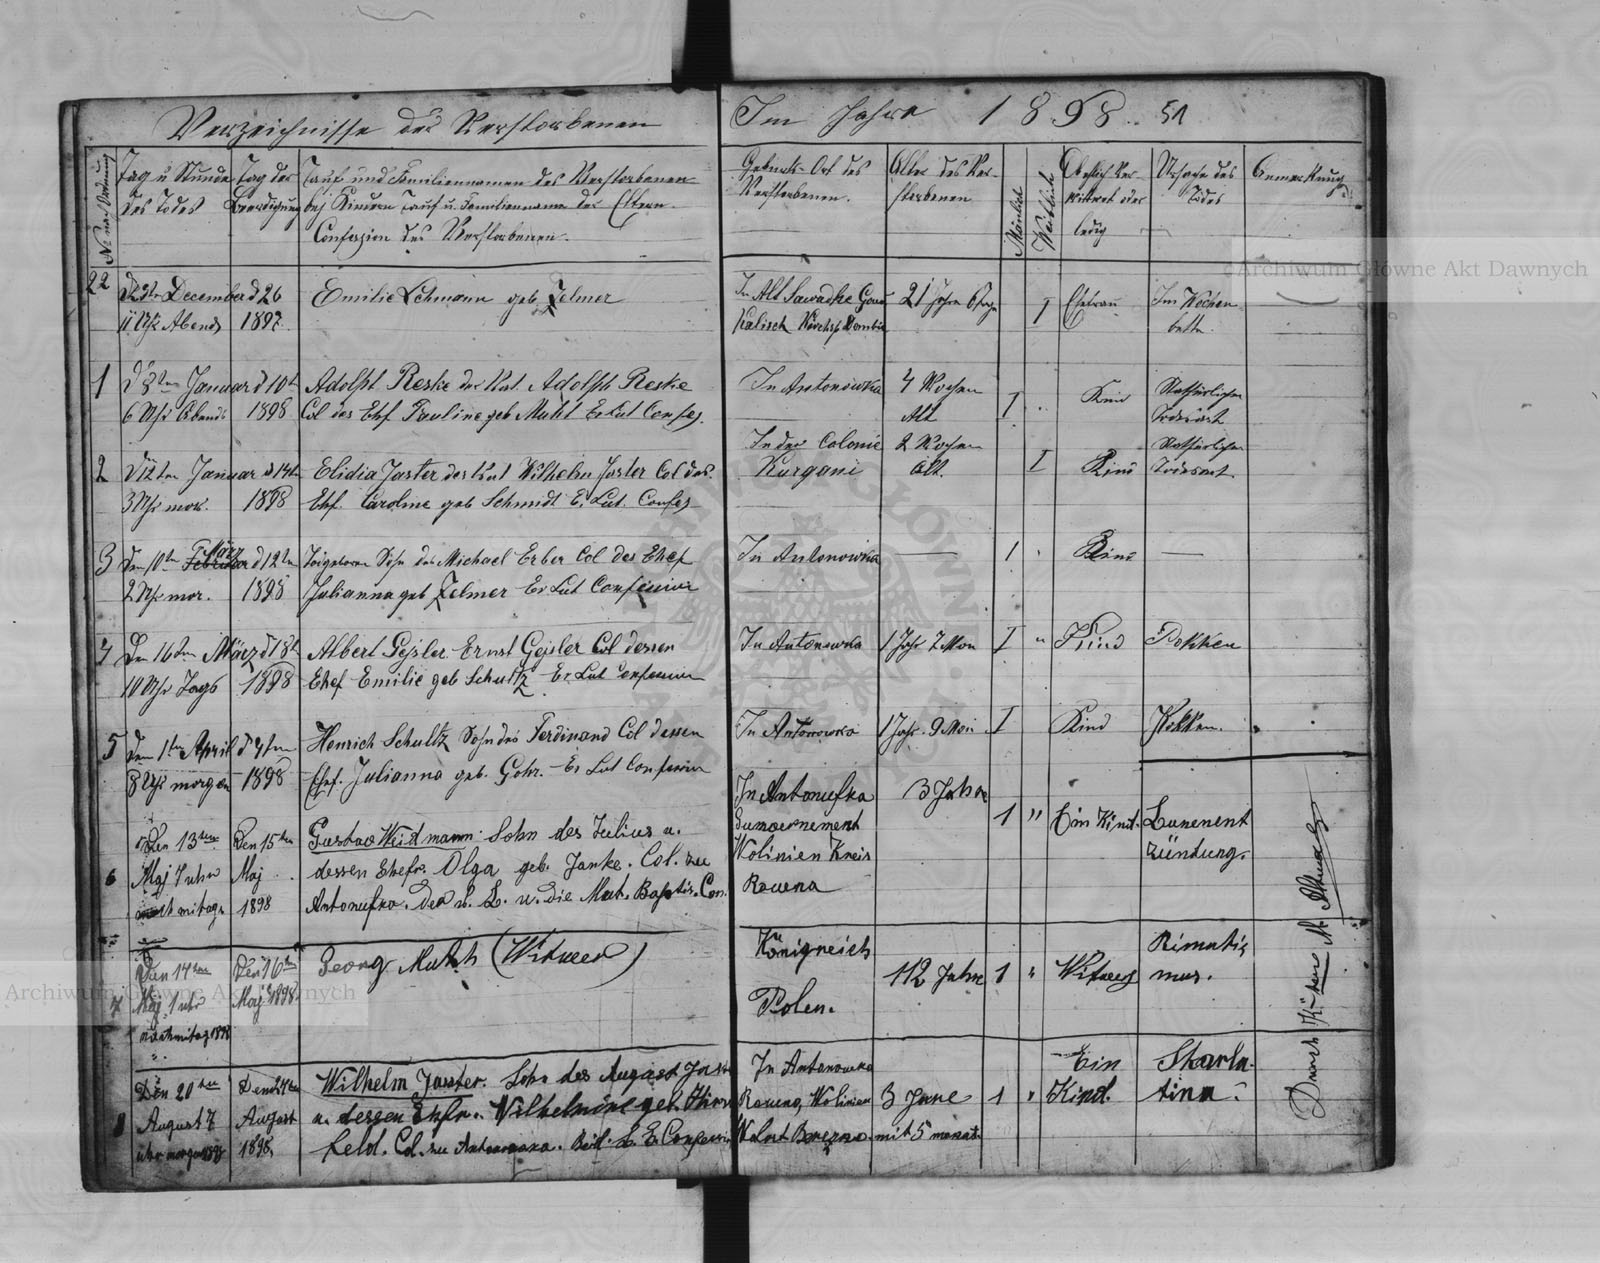 Verzeichnisse der Verstorbenen
Im Jahre 1898. 51
№ nach Ordnung
Tag u Stunde
des Todes
Tag der
Beerdigung
Tauf und Familiennamen des Verstorbenen
bei Kindern Tauf u. Familienname der Eltern.
Confession des Verstorbenen.
Geburts-Ort des
Verstorbenen.
Alter des Ver-
storbenen
Mänlich
Weiblich
ledig
Ursache des
Todes
Anmerkung
22
December d 26
Emilie Lehmann geb. Zelmer
In Alt
21 Jahre 6 Tage
I
Ehefrau
Im Wochen
11 Uhr Abends 1897.
Kalisch
bette.
1
d 8ten Januar d 10ten
Adolph Reske des Adolph Reske
In Antonowka
4 Wochen
Alt
I
Kind
Natürlichen
Todesart
6 Uhr Abends 1898
Col des Ehf. Pauline geb Muht Ev Lut Confes.
2
d 12ten Januar d 14ten
Elidia Jaster des Wilhelm Jaster Col des.
In der Colonie
Kurgani
2 Wochen
Alt.
I
Kind
Natürlichen
Todesart.
3 Uhr mor. 1898
Ehf. Caroline geb Schmidt Ev. Lut. Confes
3
Den 10ten März d 12ten
Sohn des Michael Erber Col des Ehef
In Antonowka
1
Kind
2 Uhr mor. 1898
Julianna geb Zelmer Ev Lut Confession
4
Den 16ten März d 18ten
Albert Geisler Ernst Geisler Col dessen
In Antonowka
1 Jahr 2 Mon
I
"
Kind
Pokken
10 Uhr Tags 1898
Ehef Emilie geb Schultz Ev Lut Confession
5
Den 1ten April d 4ten
Henrich Schultz Sohn des Ferdinand Col dessen
In Antonowka
1 Jahr. 9 Mon
I
Kind
Pokken.
8 Uhr morgen 1898
Ehef. Julianna geb. Gohr. Ev Lut Confession
6
Den 13ten
Maj 1 uhr
1898
Den 15ten
Maj
Gustav Weidmann. Sohn des Julius u.
dessen Ehefr. Olga geb. Janke. Col. zu
Antonufka. Der v. L. u. die Mut. Baptis. Con.
In Antonufka
Guwernement
Wolinien Kreis
Rowna
3 Jahre
1
"
Ein Kind.
Lunenent
zündung.
7
Den 14ten
Maj 1 uhr
nachmitag 1898
Den 16ten
Maj 1898.
Georg Muhth (Witwer)
Königreich
Polen.
112 Jahre
1
"
Witwer
Rimatis
mus.
8
Den 20ten
August 7
uhr morgen 1898
Den 24ten
August
1898.
Wilhelm Jaster. Sohn des August Jaster
u. dessen Ehfr. Wilhelmine geb. Hirsch
feld. Col. zu Antonowka. Beid. L. E. Confession
In Antonowka
Rowno, Wolinien
3 Jare
mit 5 monat.
1
"
Ein
Kind.
Skarla-
tina.
Durch Küster A.
Archiwum Główne Akt Dawnych
Archiwum Główne Akt Dawnych